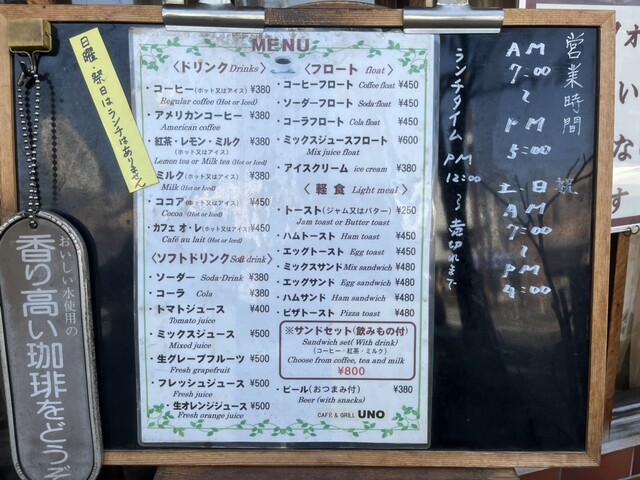 MENU
〈ドリンクDrinks〉
・コーヒー(ホット又はアイス) ¥380
Regular coffee (Hot or Iced)
・アメリカンコーヒー ¥380
American coffee
・紅茶・レモン・ミルク ¥380
(ホット又はアイス)
Lemon tea or Milk tea (Hot or Iced)
・ミルク(ホット又はアイス) ¥380
Milk (Hot or Iced)
・ココア(ホット又はアイス) ¥450
Cocoa (Hot or Iced)
・カフェ オ・レ(ホット又はアイス) ¥450
Café au lait (Hot or Iced)
〈ソフトドリンクSoft drink〉
・ソーダー Soda·Drink ¥380
・コーラ Cola ¥380
・トマトジュース ¥400
Tomato juice
・ミックスジュース ¥500
Mixed juice
・生グレープフルーツ ¥500
Fresh grapefruit
・フレッシュジュース ¥500
Fresh juice
・生オレンジジュース ¥500
Fresh orange juice
〈フロート float〉
・コーヒーフロート Coffee float ¥450
・ソーダーフロート Soda float ¥450
・コーラフロート Cola float ¥450
・ミックスジュースフロート ¥600
Mix juice float
・アイスクリーム ice cream ¥380
〈軽食 Light meal〉
・トースト(ジャム又はバター) ¥250
Jam toast or Butter toast
・ハムトースト Ham toast ¥450
・エッグトースト Egg toast ¥450
・ミックスサンド Mix sandwich ¥480
・エッグサンド Egg sandwich ¥480
・ハムサンド Ham sandwich ¥480
・ピザトースト Pizza toast ¥480
※サンドセット(飲みもの付)
Sandwich set( With drink)
(コーヒー・紅茶・ミルク)
Choose from coffee, tea and milk
¥800
・ビール(おつまみ付) ¥380
Beer (with snacks)
CAFE & GRILL UNO
日曜・祭日はランチはありません
おいしい水使用の
香り高い珈琲をどうぞ
営業時間
AM
7:00
〜
PM
5:00
土 日 祝
AM
7:00
〜
PM
4:00
ランチタイム PM 12:00 〜 売切れまで